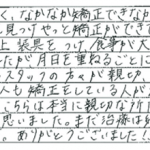 く、なかなか矯正できなか
見つけやっと矯正ができ
上 装具をつけ、食事が大
たが月日を重ねるごとに
スタッフの方々が親切
人も矯正をしている人が
こちらは本当に親切な所
思いました。まだ治療は
。ありがとうございました!